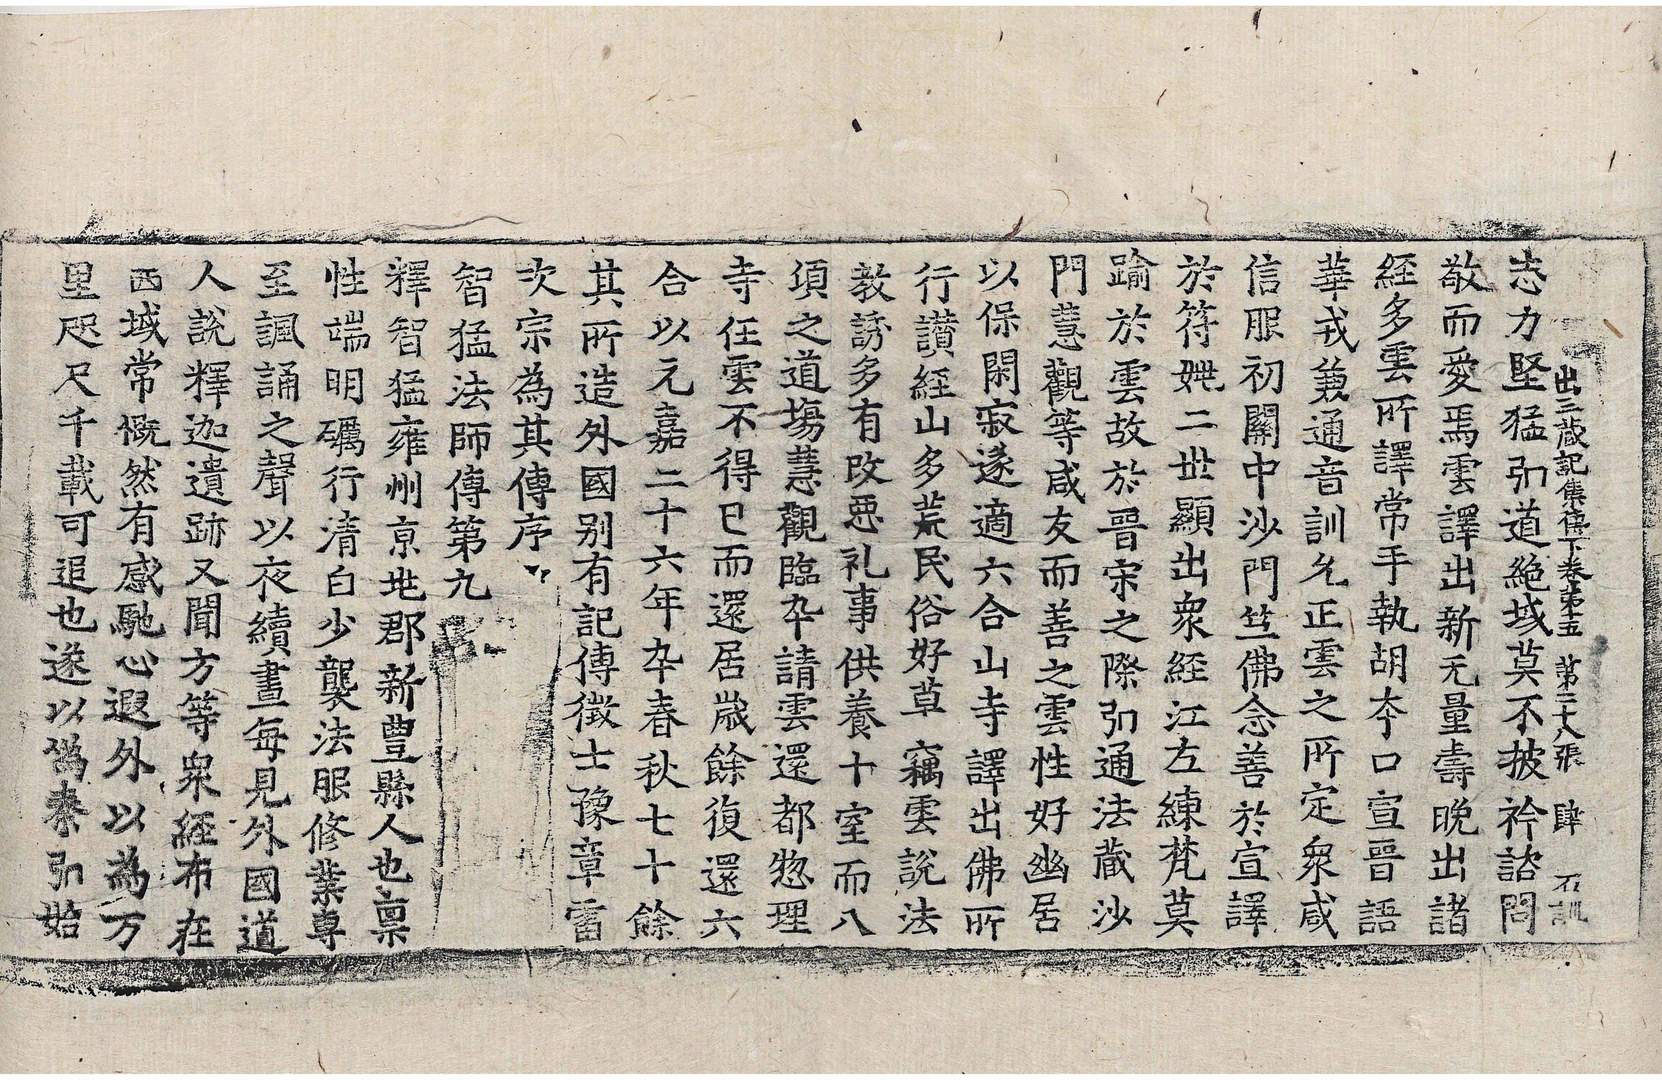 出三蔵記集傳下卷第十五 第二十八張 肆 石訓
志力堅猛弘道絶域莫不披衿諮問
敬而愛焉雲譯出新无量壽晚出諸
經多雲所譯常手執胡夲口宣晉語
華戎兼通音訓允正雲之所定衆咸
信服初關中沙門竺佛念善於宣譯
於符姚二世顯出衆経江左練梵莫
踰於雲故於晉宋之際弘通法蔵沙
門慧觀等咸友而善之雲性好幽居
以保閑寂遂適六合山寺譯出佛所
行讃経山多荒民俗好草竊雲說法
教誘多有改惡礼事供養十室而八
頃之道塲慧觀臨卒請雲還都惣理
寺任雲不得已而還居歲餘復還六
合以元嘉二十六年卒春秋七十餘
其所造外國别有記傳徴士豫章雷
次宗為其傳序
智猛法師傳第九
釋智猛雍州京地郡新豐縣人也禀
性端明礪行清白少襲法服修業專
至諷誦之聲以夜續晝每見外國道
人說釋迦遺跡又聞方等衆経布在
西域常慨然有感馳心遐外以為万
里咫尺千載可追也遂以偽秦弘始